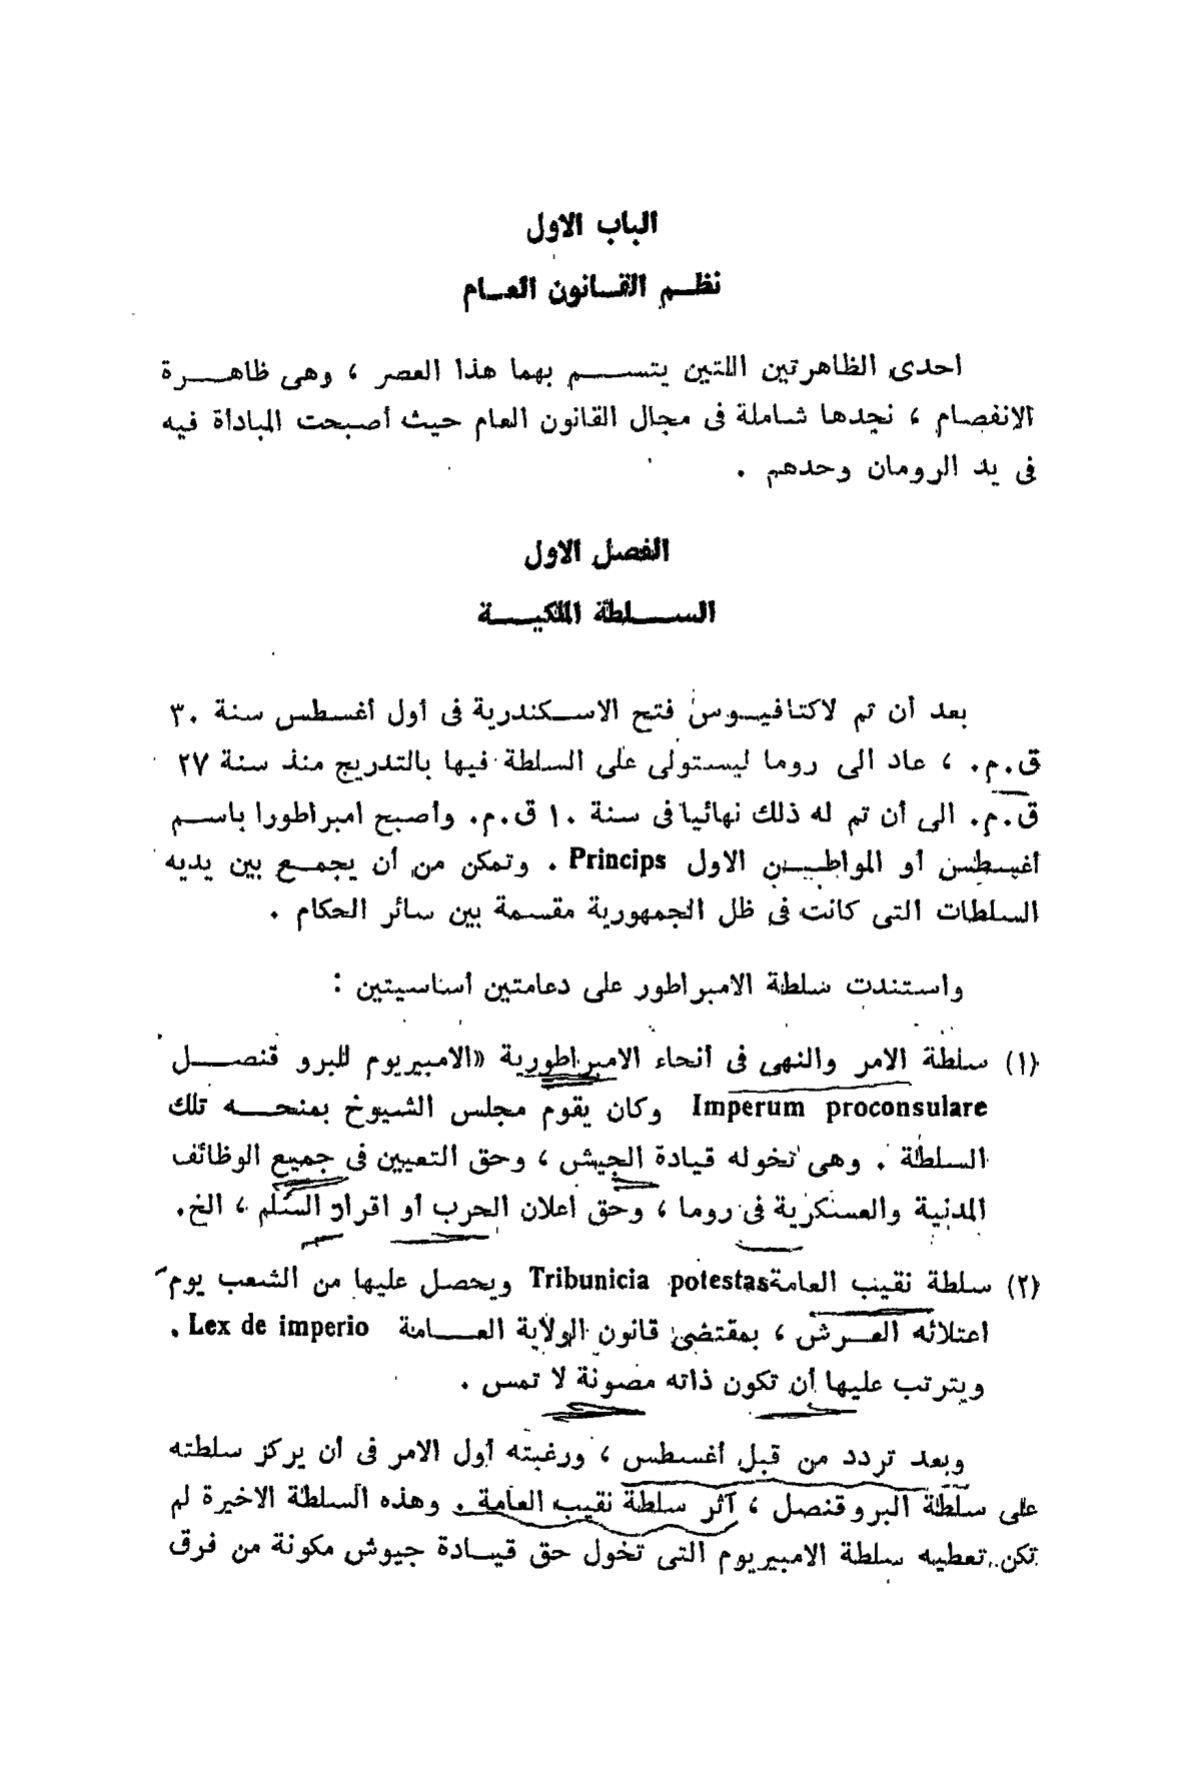 الباب الاول
نظم القانون العام
احدى الظاهرتين اللتين يتسم بهما هذا العصر ، وهى ظاهرة
الانفصام ، نجدها شاملة فى مجال القانون العام حيث أصبحت المبادأة فيه
فى يد الرومان وحدهم .
الفصل الاول
السلطة الملكية
بعد أن تم لاكتافيوس فتح الاسكندرية فى أول أغسطس سنة ٣٠
ق.م. ، عاد الى روما ليستولى على السلطة فيها بالتدريج منذ سنة ٢٧
ق.م. الى أن تم له ذلك نهائيا فى سنة ١٠ ق.م. وأصبح امبراطورا باسم
أغسطس أو المواطن الاول Princips . وتمكن من أن يجمع بين يديه
السلطات التى كانت فى ظل الجمهورية مقسمة بين سائر الحكام .
واستندت سلطة الامبراطور على دعامتين أساسيتين :
(١) سلطة الامر والنهى فى أنحاء الامبراطورية «الامبيريوم للبرو قنصل
Imperum proconsulare وكان يقوم مجلس الشيوخ بمنحه تلك
السلطة . وهى تخوله قيادة الجيش ، وحق التعيين فى جميع الوظائف
المدنية والعسكرية فى روما ، وحق اعلان الحرب أو اقرار السلم ، الخ.
(٢) سلطة نقيب العامة Tribunicia potestas ويحصل عليها من الشعب يوم
اعتلائه العرش ، بمقتضى قانون الولاية العامة Lex de imperio .
ويترتب عليها أن تكون ذاته مصونة لا تمس .
وبعد تردد من قبل أغسطس ، ورغبته أول الامر فى أن يركز سلطته
على سلطة البروقنصل ، آثر سلطة نقيب العامة . وهذه السلطة الاخيرة لم
تكن تعطيه سلطة الامبيريوم التى تخول حق قيادة جيوش مكونة من فرق